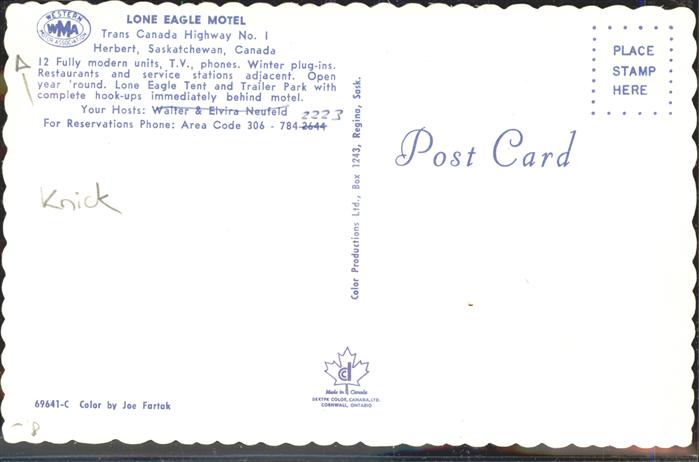 WESTERN
WMA
MOTOR ASSOCIATION
LONE EAGLE MOTEL
Trans Canada Highway No. 1
Herbert, Saskatchewan, Canada
12 Fully modern units, T.V., phones. Winter plug-ins.
Restaurants and service stations adjacent. Open
year 'round. Lone Eagle Tent and Trailer Park with
complete hook-ups immediately behind motel.
Your Hosts: Walter & Elvira Neufeld
2223
For Reservations Phone: Area Code 306 - 784-2644
Knick
Color Productions Ltd., Box 1243, Regina, Sask.
PLACE
STAMP
HERE
Post Card
Made in Canada
DEXTER COLOR, CANADA, LTD.
CORNWALL, ONTARIO
69641-C Color by Joe Fartak